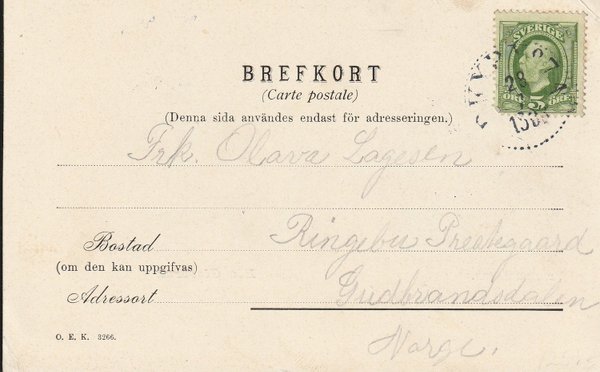 SVERIGE
BREFKORT
(Carte postale)
(Denna sida användes endast för adresseringen.)
ÖRE 5 ÖRE
Frk. Olava Lagesen
Bostad
(om den kan uppgifvas)
Ringebu Prestegaard
Adressort
Gudbrandsdalen
Norge.
O. E. K. 3266.